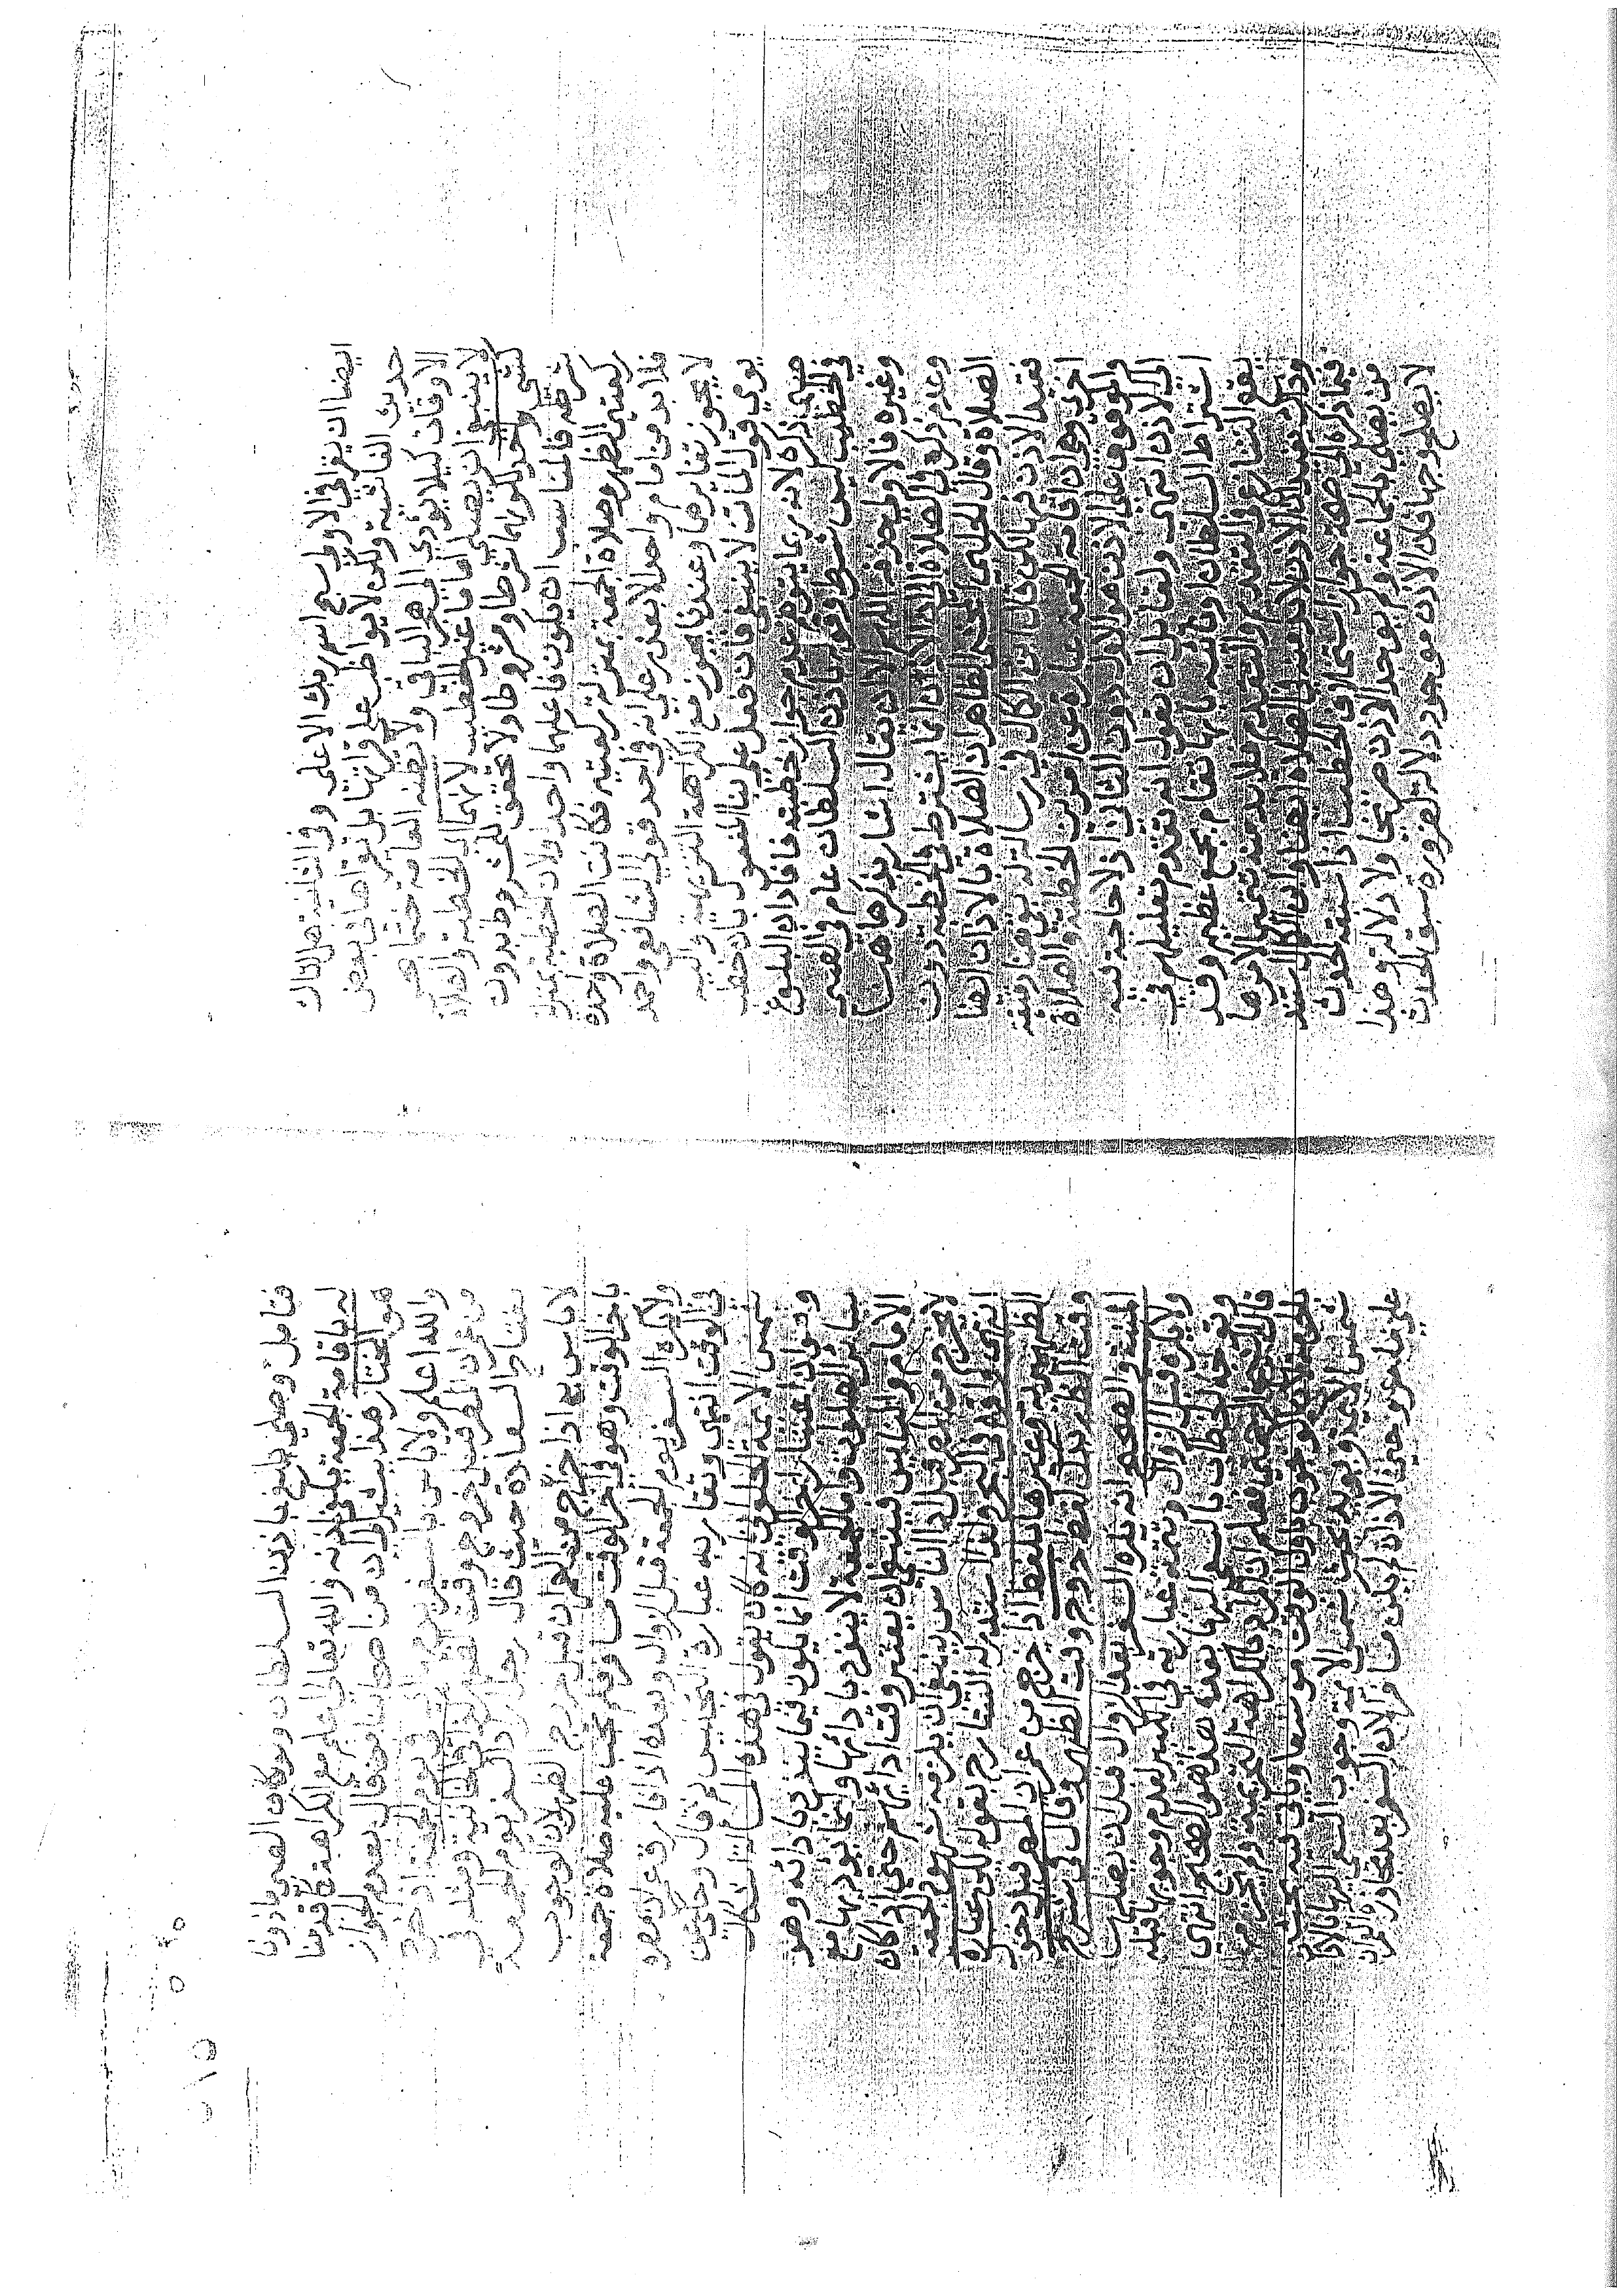 ايضا ان يقرأ في الاولى سبح اسم ربك الاعلى وفي الثانية هل اتاك
حديث الغاشية ولكن لا يواظب على قراتها بل يقراهما في بعض
الاوقات كيلا يؤدي الى هجر الباقي ولا يظنه العامة حتما هـ
لا ينبغي ان يصلي امام غير الخطيب لانهما اي الخطبة والصلاة
كشي واحد لكونهما شرطا ومشروطا ولا تحقق للمشروط بدون
شرطه فالمناسب ان يكون فاعلهما واحدا ولان الخطبة بمنزلة
ركعتي الظهر وصلاة الجمعة بمنزلة ركعتيه فكانت الصلاة واحدة
فلا بد من امام واحد لا بعذر على انه في احد قولي الشافعي واحمد
لا يجوز تغايرهما وعندنا يجوز مع الكراهة التنزيهية واليه
يومي قول الماتن لا ينبغي فان فعل على بنا المفعول بان خطب
صبي ذكره لانه ربما يتوهم عدم جواز خطبته فافاد ان البلوغ
في الخطيب ليس بشرط وقوله باذن السلطان عام في الصبي
وغيره فالاولى حذفه اللهم الا ان يقال اشار بذكرها هنا
وعدم ذكره في الصلاة الى ان الاذن انما يشترط في الخطبة دون
الصلاة وقال الحلبي المحشي الظاهر ان الصلاة ايضا
الاذن فيها لكن قال ابن الكمال في رسالة له بقي هنا دقيقة
اخرى وهي ان اقامة الجمعة عبارة عن امرين الخطبة والصلاة
والموقوف على الاذن هو الاول دون الثاني اذ لا حاجة فيه
الى الاذن انتهى ولقائل ان يقول انه تقدم تعليلهم في
اشتراط السلطان او نائبه بانها تقام بجمع عظيم وقد
يقع التنازع في التقدم والتقديم فلا بد منه تتميما لامرها
وذلك يفيد ان الاذن لا بد منه في الصلاة ايضا وابن الكمال استند
فيما ذكره الى صحة جواز استخلاف الخطيب اذا سبقه الحدث
من يصلي بالجماعة ولم يوجد الاذن صريحا ولا دلالة وهذا
لا يصلح وجها لان الاذن موجود دلالة لضرورة سبق الحدث
فتامل وصلى بالغ باذن السلطان ولو كان الصبي ماذونا
له باقامة الجمعة يكفي اذنه والله تعالى اعلم مع الكراهة كما قدمنا
هو المختار هذا يشير الى ان من اصحابنا من قال بعدم الجواز
والله اعلم ولا باس بالسفر يوم الجمعة اذا خرج
من عمران المصر قبل خروج وقت الظهر كذا في الخانية ومثله في
مفتاح السعادة حيث قال رجل اراد السفر يوم الجمعة
لا باس به اذا خرج من العمران قبل خروج الظهر لان الوجوب
باخر الوقت وهو في اخر الوقت مسافر فلم تجب عليه صلاة الجمعة
ولا يكره السفر يوم الجمعة قبل الزوال وبعده اذا فارق عمران مصره
في الوقت انتهى وتقاربه عبارة التجنيس ثم قال وحكي عن
شمس الائمة الحلواني انه كان يقول في هذه المسالة اشكال
وهو ان اعتبار اخر الوقت انما يكون فيما ينفرد بادائه وهو
سائر الصلوات واما الجمعة لا ينفرد بادائها وانما يؤديها مع
الامام والناس فينبغي ان يعتبر وقت ادائهم حتى اذا كان
لا يخرج من المصر قبل اداء الناس ينبغي ان يلزمه شهود الجمعة
انتهى واقره في البحر ولذا استدركه الشارح بقوله لكن عبارة
الظهيرية وغيرها بلفظ اذا خرج من عمران المصر قبل دخول
وقت الظهر بدل لفظ خروج وقت الظهر وقال في شرح
المنية والصحيح انه يكره السفر بعد الزوال قبل ان يصليها
ولا يكره قبل الزوال وتتمة عبارته في الكبير لعدم وجوبها قبله
وتوجه الخطاب بالسعي اليها بعده هذا هو الصحيح انتهى
فعلم ان المراد بالكراهة التحريمية
الوقت موسعا
شمس الائمة ويؤيد بحث شمس الائمة وجوب السعي اليها
الاذان لم يكن مسافرا السفر بعد تجاوز العمران